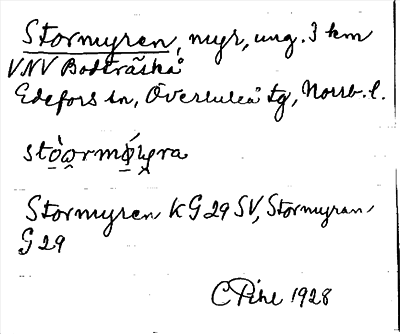 Stormyren, myr, ung. 3 km
VNV Bodträskå
Edefors sn, Överluleå tg, Norrb. l.
Stormyren KG 29 SV, Stormyran
G 29
C Pihl 1928